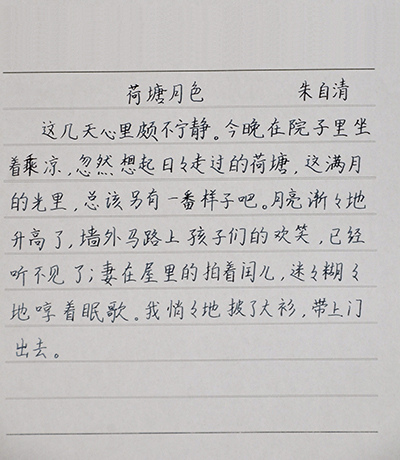 荷塘月色 朱自清
这几天心里颇不宁静。今晚在院子里坐
着乘凉,忽然想起日々走过的荷塘,这满月
的光里,总该另有一番样子吧。月亮渐々地
升高了,墙外马路上孩子们的欢笑,已经
听不见了;妻在屋里的拍着闰儿,迷々糊々
地哼着眠歌。我悄々地披了大衫,带上门
出去。